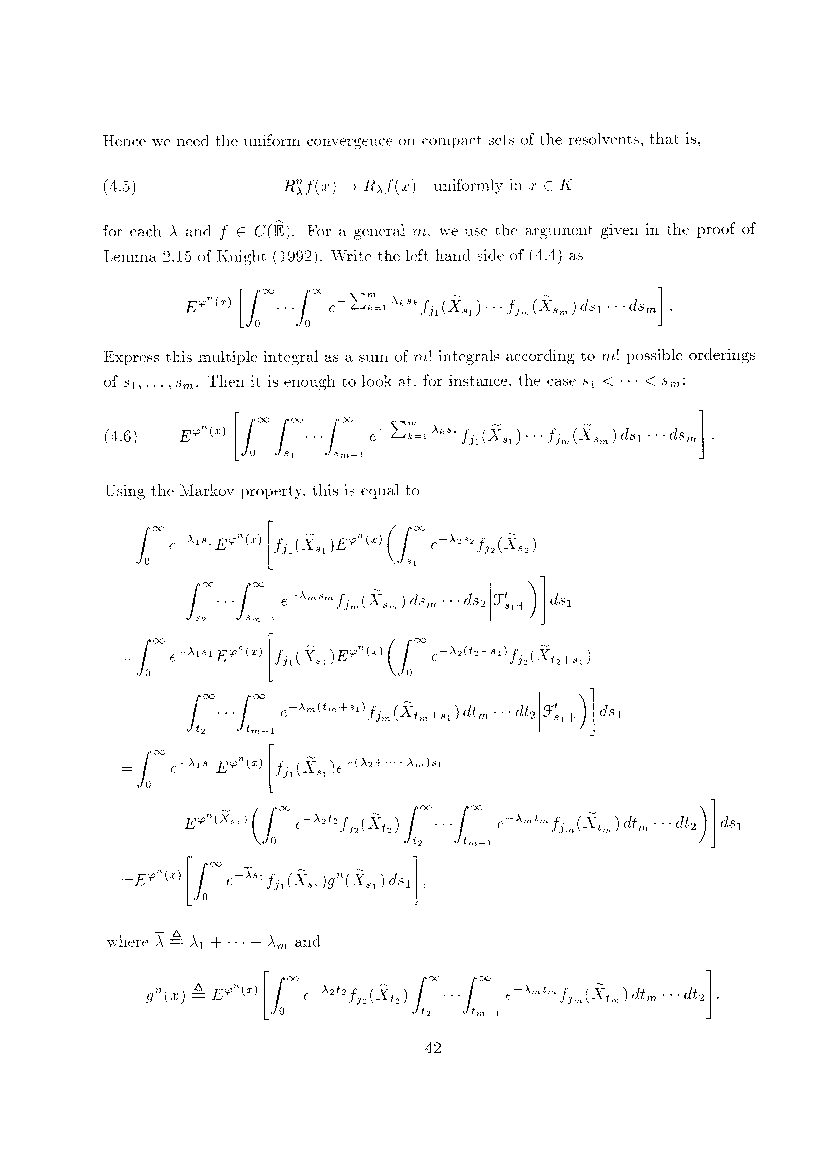 Hence we need the uniform convergence on compact sets of the resolvents, that is,
(4.5) $R^n_\lambda f(x) \to R_\lambda f(x)$ uniformly in $x \in K$
for each $\lambda$ and $f \in C(\widehat{\mathbb{E}})$. For a general $m$, we use the argument given in the proof of
Lemma 2.15 of Knight (1992). Write the left hand side of (4.4) as
$E^{\varphi^n(x)}\left[\int_0^\infty \cdots \int_0^\infty e^{-\sum_{k=1}^m \lambda_k s_k} f_{j_1}(\widetilde{X}_{s_1}) \cdots f_{j_m}(\widetilde{X}_{s_m})\, ds_1 \cdots ds_m\right].$
Express this multiple integral as a sum of $m!$ integrals according to $m!$ possible orderings
of $s_1, \ldots, s_m$. Then it is enough to look at, for instance, the case $s_1 < \cdots < s_m$:
(4.6) $E^{\varphi^n(x)}\left[\int_0^\infty \int_{s_1}^\infty \cdots \int_{s_{m-1}}^\infty e^{-\sum_{k=1}^m \lambda_k s_k} f_{j_1}(\widetilde{X}_{s_1}) \cdots f_{j_m}(\widetilde{X}_{s_m})\, ds_1 \cdots ds_m\right].$
Using the Markov property, this is equal to
$\int_0^\infty e^{-\lambda_1 s_1} E^{\varphi^n(x)}\Big[f_{j_1}(\widetilde{X}_{s_1}) E^{\varphi^n(x)}\Big(\int_{s_1}^\infty e^{-\lambda_2 s_2} f_{j_2}(\widetilde{X}_{s_2})$
$\int_{s_2}^\infty \cdots \int_{s_{m-1}}^\infty e^{-\lambda_m s_m} f_{j_m}(\widetilde{X}_{s_m})\, ds_m \cdots ds_2 \Big| \mathcal{F}'_{s_1+}\Big)\Big] ds_1$
$= \int_0^\infty e^{-\lambda_1 s_1} E^{\varphi^n(x)}\Big[f_{j_1}(\widetilde{X}_{s_1}) E^{\varphi^n(x)}\Big(\int_0^\infty e^{-\lambda_2(t_2+s_1)} f_{j_2}(\widetilde{X}_{t_2+s_1})$
$\int_{t_2}^\infty \cdots \int_{t_{m-1}}^\infty e^{-\lambda_m(t_m+s_1)} f_{j_m}(\widetilde{X}_{t_m+s_1})\, dt_m \cdots dt_2 \Big| \mathcal{F}'_{s_1+}\Big)\Big] ds_1$
$= \int_0^\infty e^{-\lambda_1 s_1} E^{\varphi^n(x)}\Big[f_{j_1}(\widetilde{X}_{s_1}) e^{-(\lambda_2+\cdots+\lambda_m)s_1}$
$E^{\varphi^n(\widetilde{X}_{s_1})}\Big(\int_0^\infty e^{-\lambda_2 t_2} f_{j_2}(\widetilde{X}_{t_2}) \int_{t_2}^\infty \cdots \int_{t_{m-1}}^\infty e^{-\lambda_m t_m} f_{j_m}(\widetilde{X}_{t_m})\, dt_m \cdots dt_2\Big)\Big] ds_1$
$= E^{\varphi^n(x)}\left[\int_0^\infty e^{-\overline{\lambda} s_1} f_{j_1}(\widetilde{X}_{s_1}) g^n(\widetilde{X}_{s_1})\, ds_1\right],$
where $\overline{\lambda} \triangleq \lambda_1 + \cdots + \lambda_m$ and
$g^n(x) \triangleq E^{\varphi^n(x)}\left[\int_0^\infty e^{-\lambda_2 t_2} f_{j_2}(\widetilde{X}_{t_2}) \int_{t_2}^\infty \cdots \int_{t_{m-1}}^\infty e^{-\lambda_m t_m} f_{j_m}(\widetilde{X}_{t_m})\, dt_m \cdots dt_2\right].$
42